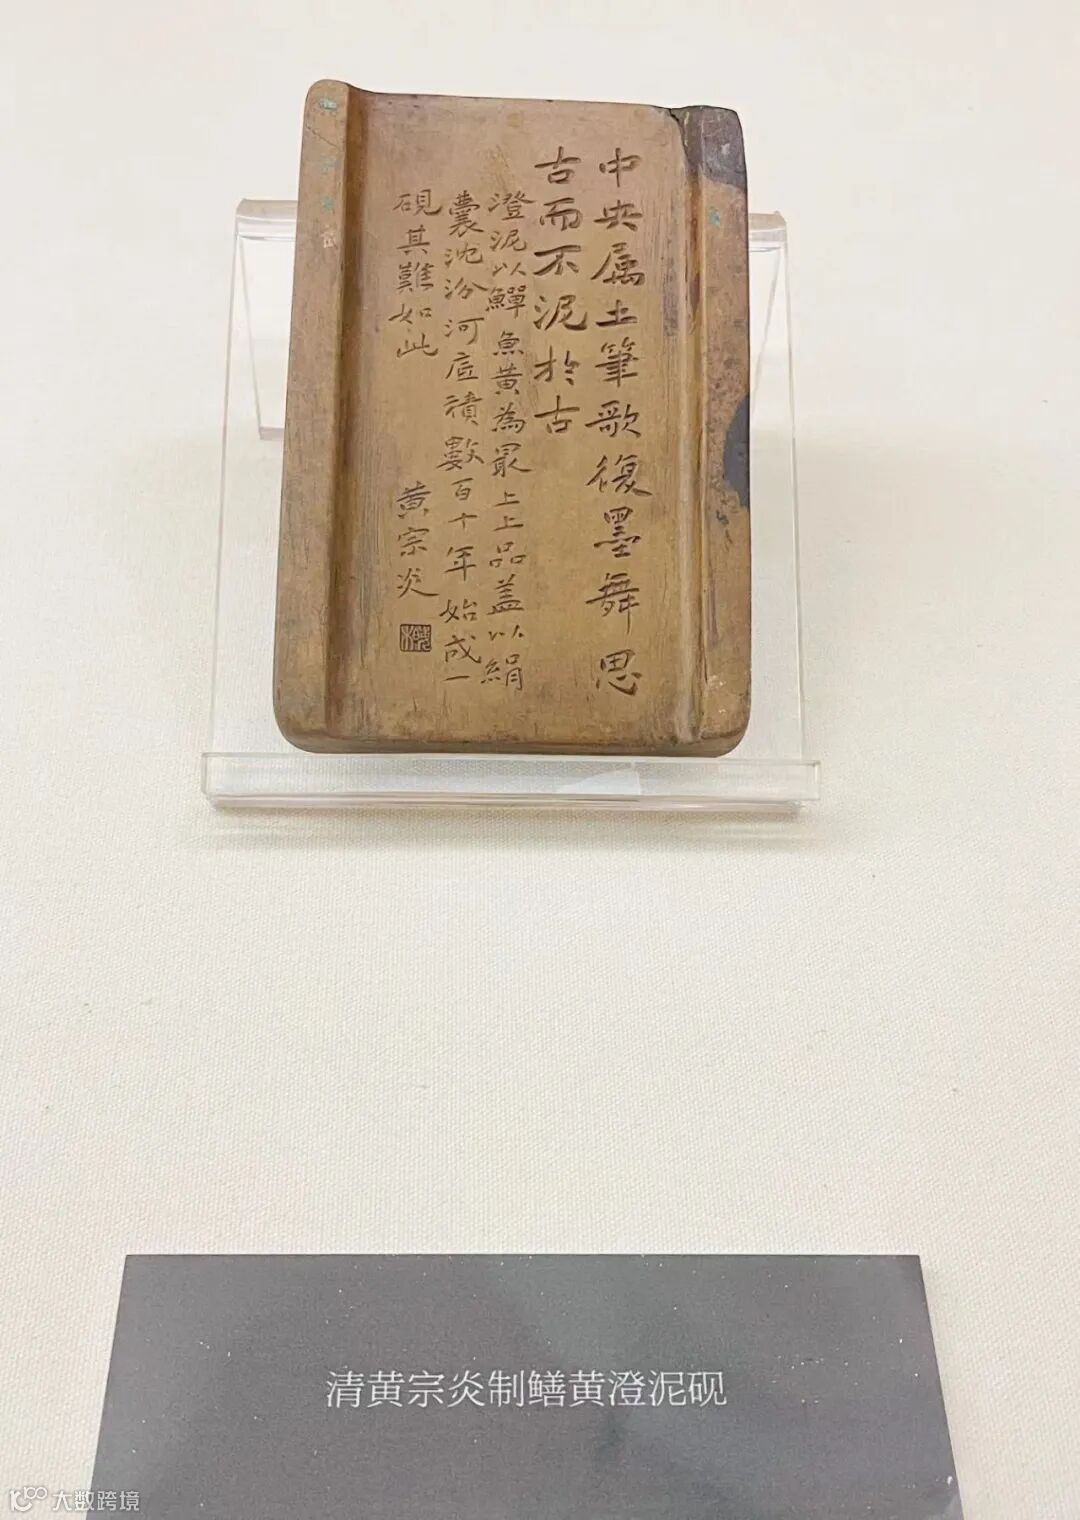 中央属土筆歌復墨舞思
古而不泥於古
澄泥以鱓魚黃為最上上品盖以絹
囊沈汾河底積數百十年始成一
硯其難如此
黄宗炎
清黄宗炎制鳝黄澄泥砚
大数跨境